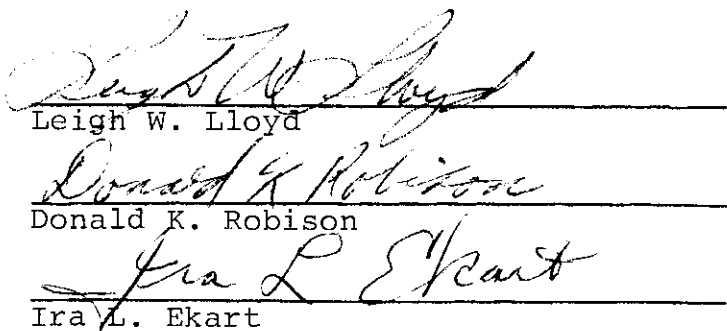 Leigh W Lloyd
Leigh W. Lloyd
Donald K Robison
Donald K. Robison
Ira L Ekart
Ira L. Ekart